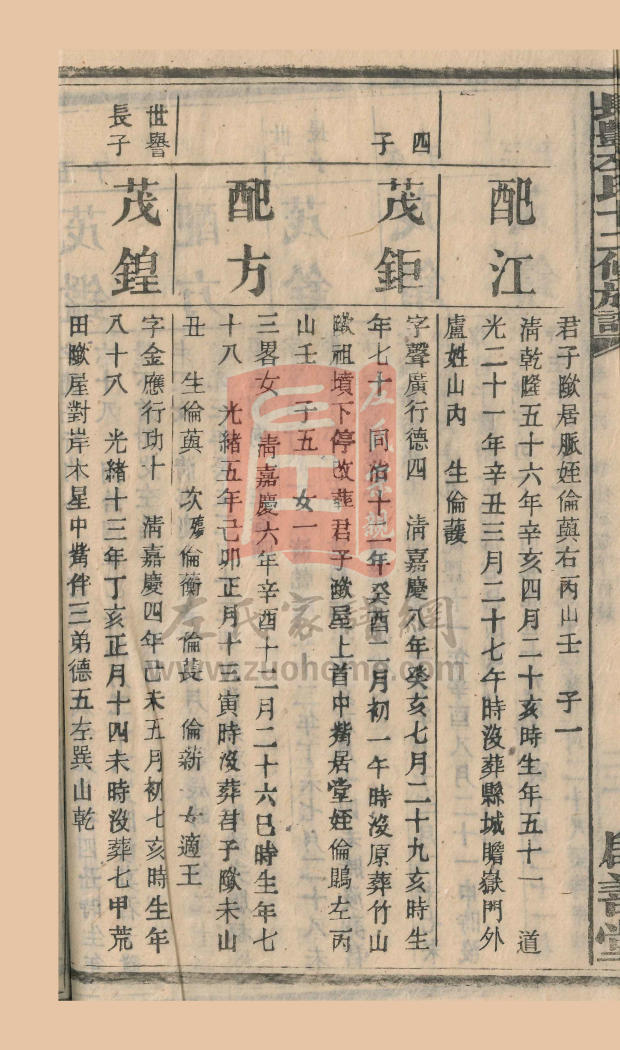 君子㘰居脈姪倫䕒右丙山壬 子一
配江
清乾隆五十六年辛亥四月二十亥時生年五十一 道
光二十一年辛丑三月二十七午時沒葬縣城瞻嶽門外
盧姓山內 生倫護
四子
茂鉅
字聲廣行德四 清嘉慶八年癸亥七月二十九亥時生
年七十 同治十二年癸酉二月初一午時沒原葬竹山
㘰祖墳下停改葬君子㘰屋上首中嘴居堂姪倫鵰左丙
山壬 子五 女一
配方
三畧女 清嘉慶六年辛酉十二月二十六巳時生年七
十八 光緒五年己卯正月十三寅時沒葬君子㘰未山
丑 生倫䕒 次 倫蘅 倫萇 倫新 女適王
世譽長子
茂鍠
字金應行功十 清嘉慶四年己未五月初七亥時生年
八十八 光緒十三年丁亥正月十四未時沒葬七甲荒
田㘰屋對岸木星中嘴伴三弟德五左巽山乾
左氏家譜網
www.zuohome.com